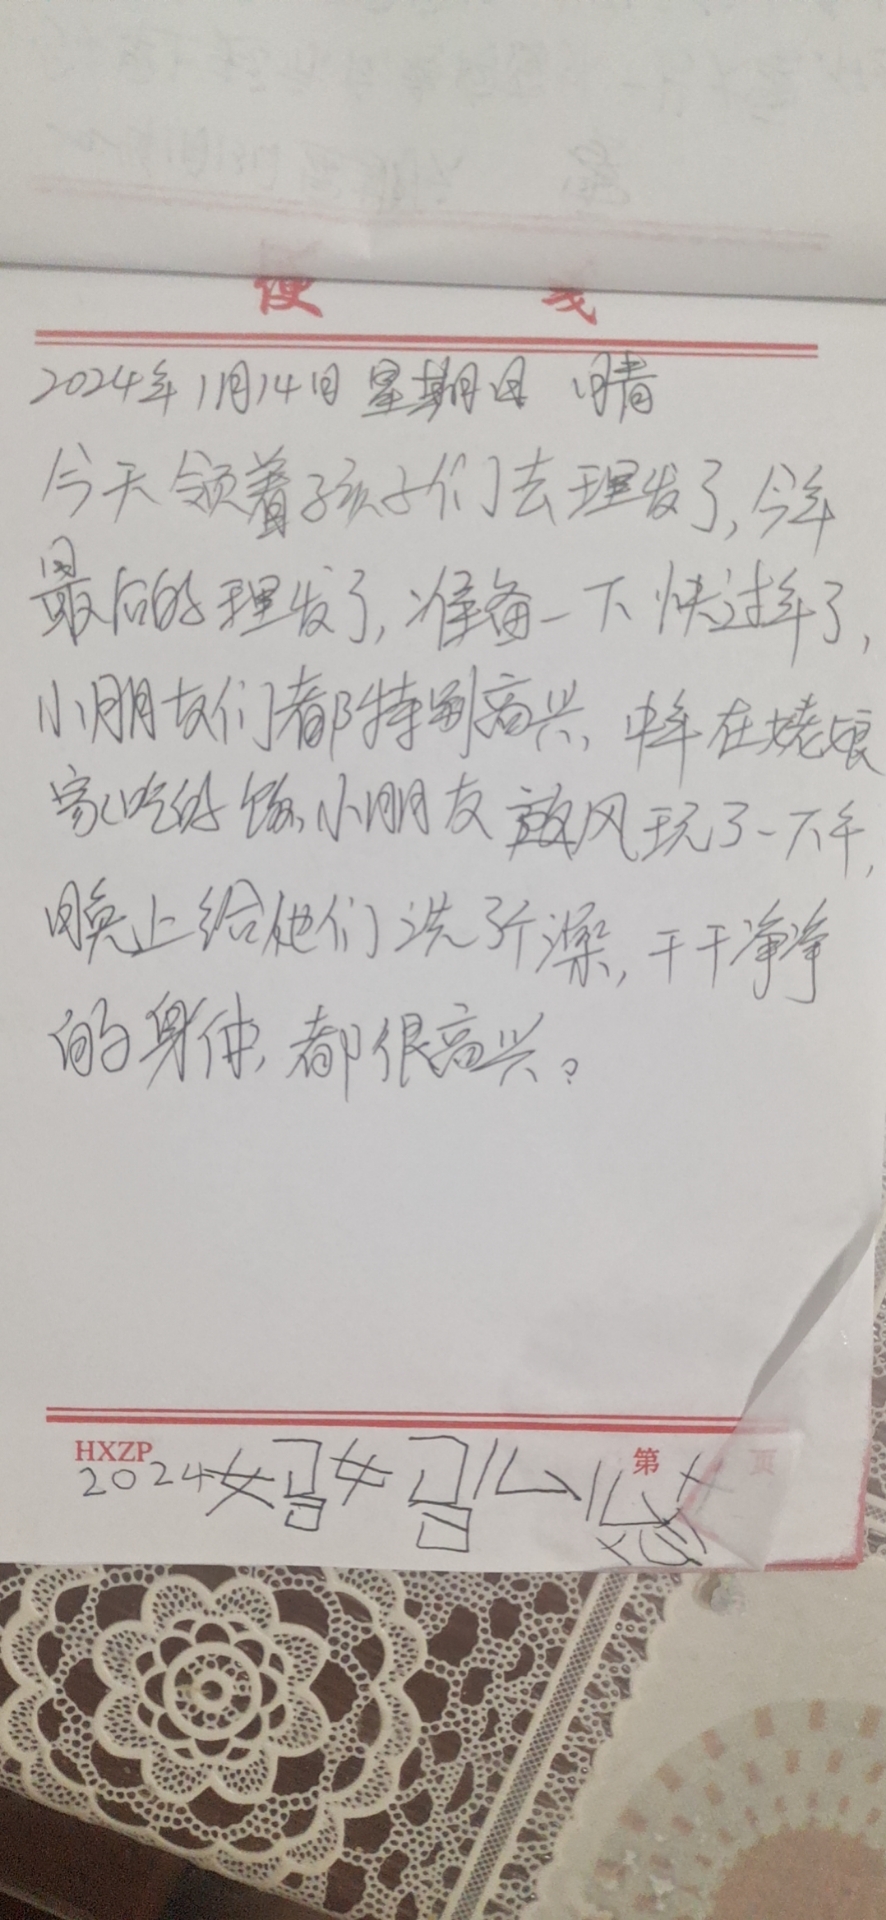 便 笺
2024年1月14日 星期日 晴
今天领着孩子们去理发了,今年
最后的理发了,准备一下快过年了,
小朋友们都特别高兴,中午在姥娘
家吃的饭,小朋友放风玩了一下午,
晚上给他们洗了个澡,干干净净
的身体,都很高兴。
HXZP 第 页
2024